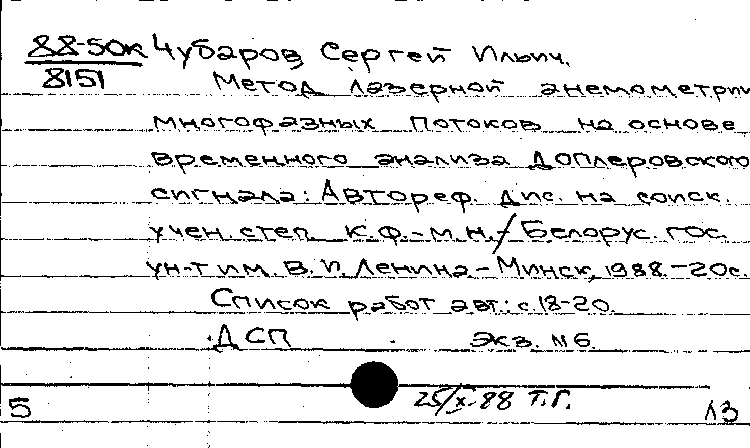 88-50к Чубаров Сергей Ильич.
8151
Метод лазерной анемометрии
многофазных потоков на основе
временного анализа доплеровского
сигнала: Автореф. дис. на соиск.
учен. степ. к.ф.-м.н. / Белорус. гос.
ун-т им. В.И. Ленина - Минск, 1988. - 20с.
Список работ авт.: с.18-20.
ДСП экз. №6.
25/X-88 Т.Г.
5 13